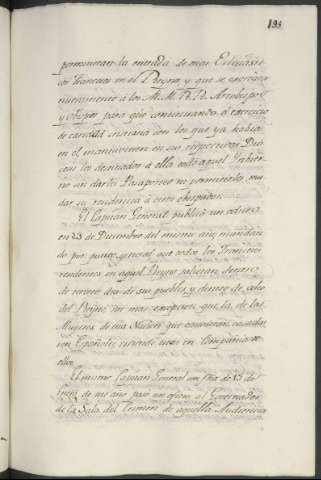 193
permitieran la entrada de mas Eclesiasti-
cos Franceses en el Reyno, y que se encargase
nuevamente à los M.M. R.R. Arzobispos
y Obispos para que continuando el exercicio
de caridad cristiana con los que ya habia
en el mantuviesen en sus respectivas Dio-
cesis los destinados à ellas por aquel Gobier-
no sin darles Pasaportes ni permitirles mu-
dar su residencia à otro obispado.
El Capitan General publicò un edicto
en 23 de Diciembre del mismo año, mandan-
do por punto general que todos los Franceses
residentes en aquel Reyno salieran dentro
de nueve dias de sus pueblos, y demas de ellos
del Reyno sin mas excepcion que la de las
Mugeres de esa Nacion que estuvieran casadas
con Españoles viviendo unas en compañia de
ellos.
El mismo Capitan General con fha. de 15 de
de ese año paso un oficio al Governador
de la Sala del Crimen de aquella Audiencia